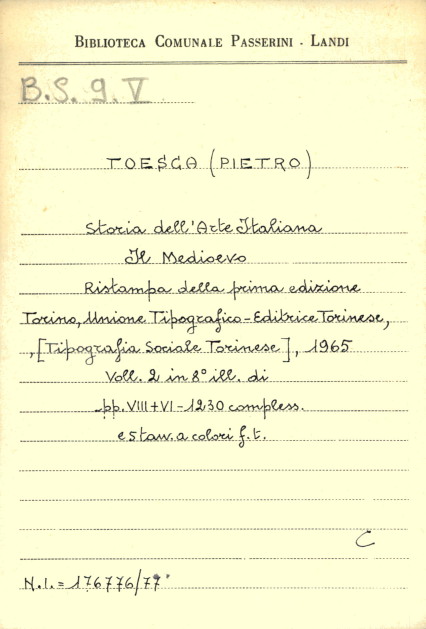 BIBLIOTECA COMUNALE PASSERINI - LANDI
B.S. 9. V
TOESCA (PIETRO)
Storia dell'Arte Italiana
Il Medioevo
Ristampa della prima edizione
Torino, Unione Tipografico-Editrice Torinese,
, [Tipografia Sociale Torinese], 1965
Voll. 2 in 8° ill. di
pp. VIII + VI - 1230 compless.
e 5 tav. a colori f. t.
C
N.I. = 176776/77